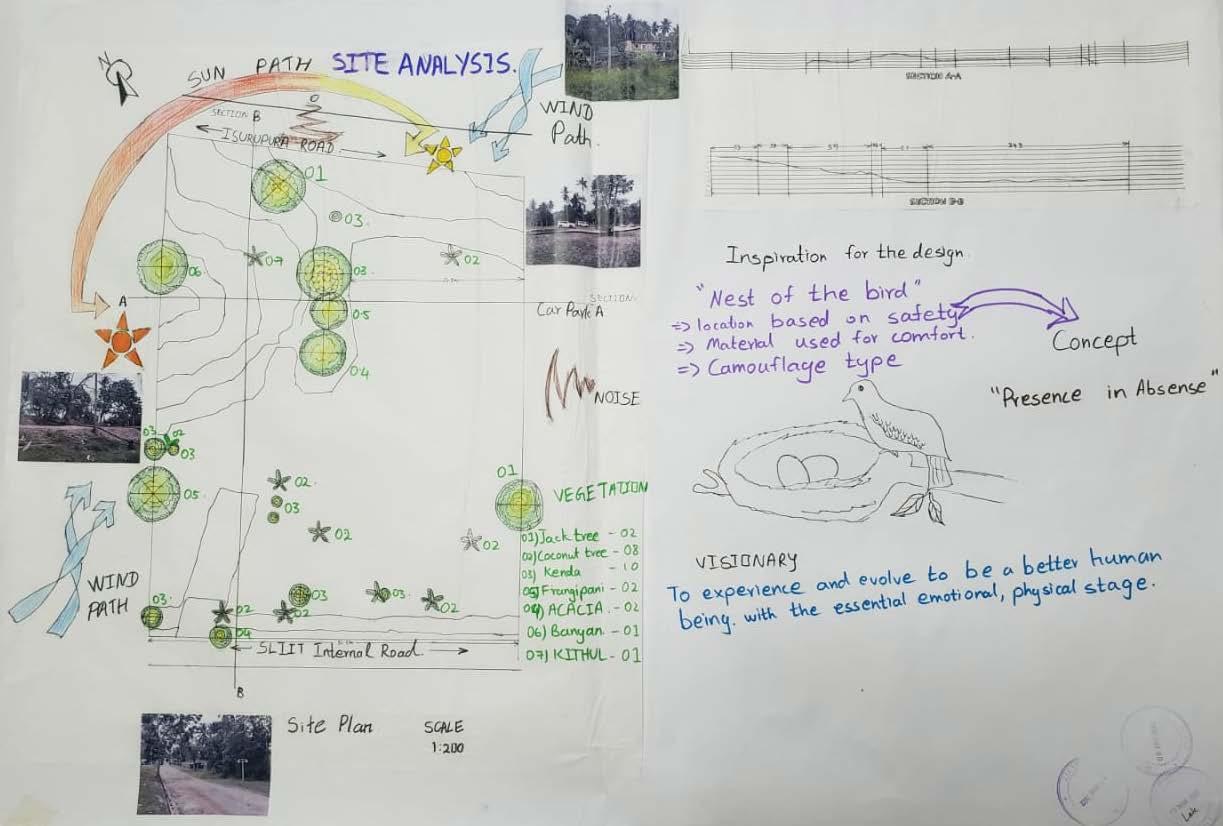 SITE ANALYSIS.
SUN PATH
N
WIND
Path.
SECTION B
ISURUPURA ROAD
01
03
06
07
03
02
A
SECTION
Car Park A
05
04
NOISE
03 02
03
05
02
03
02
02
01
WIND
PATH
03
02
04
02
03
03
02
SLIIT Internal Road
B
VEGETATION
01) Jack tree - 02
02) Coconut tree - 08
03) Kenda - 10
05) Frangipani - 02
04) ACACIA - 02
06) Banyan - 01
07) KITHUL - 01
Site Plan
SCALE
1:200
SECTION A-A
SECTION B-B
Inspiration for the design
"Nest of the bird"
=> location based on safety
=> Material used for comfort.
=> Camouflage type
Concept
"Presence in Absense"
VISIONARY
To experience and evolve to be a better human
being. with the essential emotional, physical stage.